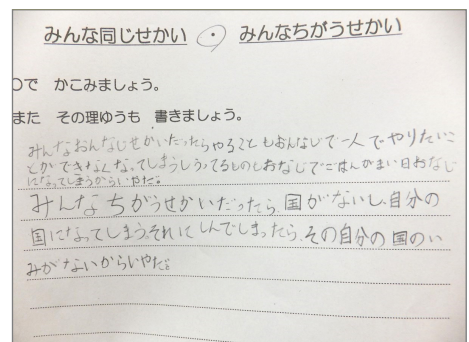 みんな同じせかい ・ みんなちがうせかい
〇で かこみましょう。
また その理ゆうも 書きましょう。
みんなおんなじせかいだったらやることもおんなじで一人でやりたいこ
とかできなくなってしまうしうってるものもおなじでごはんがまい日おなじ
になってしまうからいやだ。
みんなちがうせかいだったら国がないし、自分の
国になってしまうそれにしんでしまったら、その自分の国のい
みがないからいやだ。